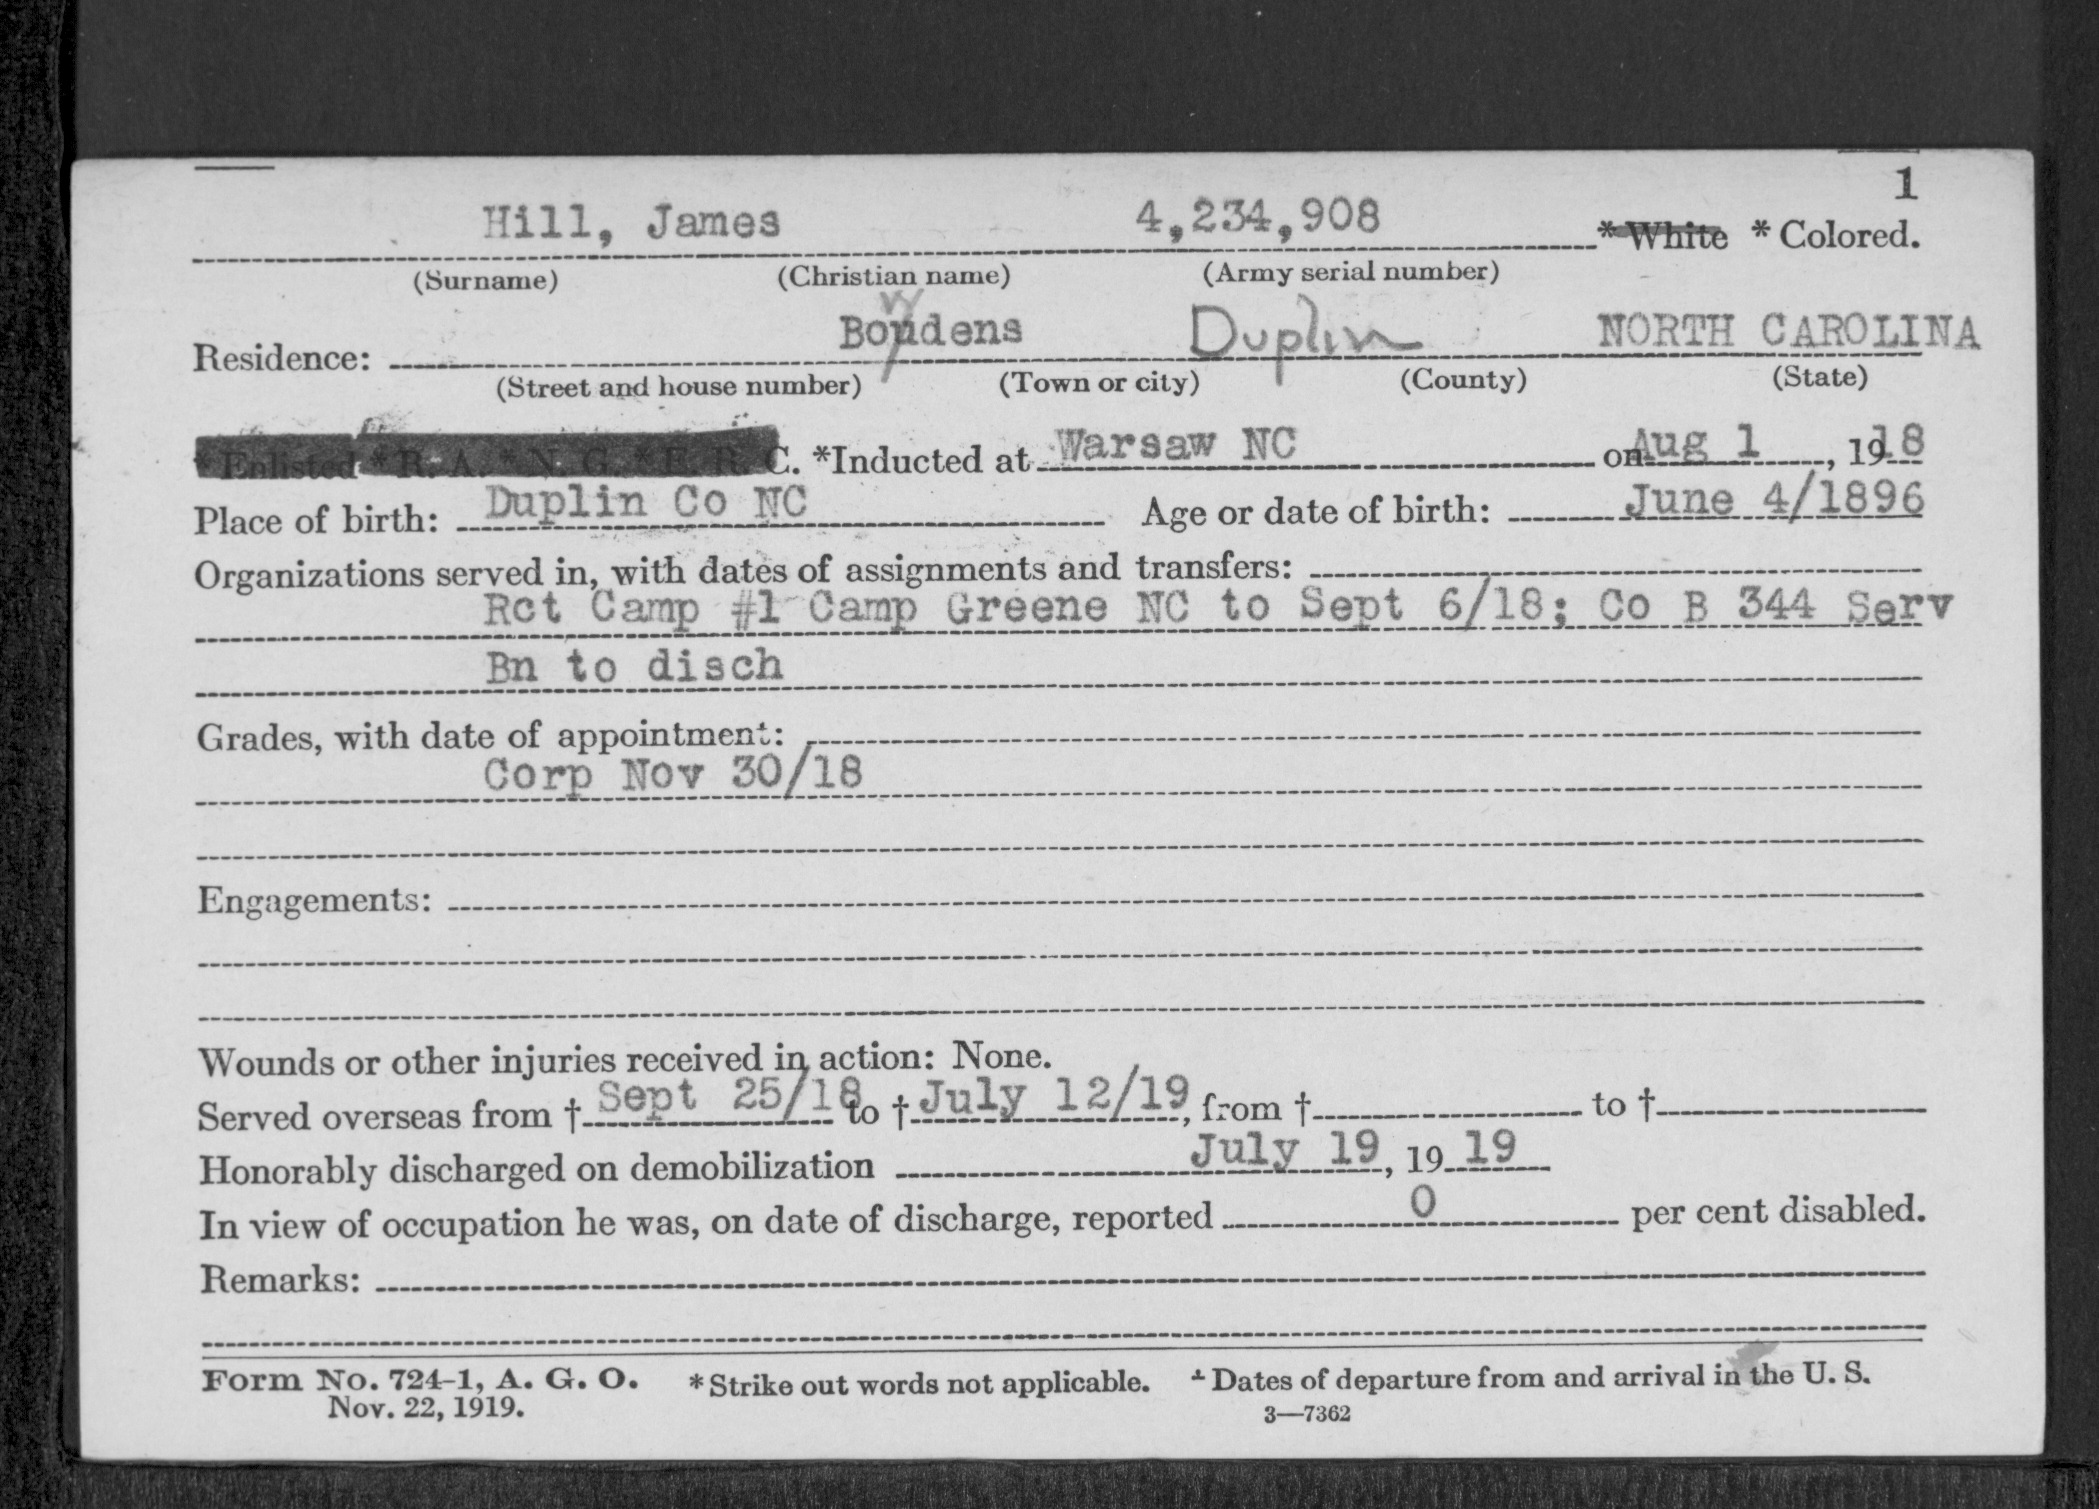 1
Hill, James 4,234,908 *White *Colored.
(Surname) (Christian name) (Army serial number)
w
Residence: Boydens Duplin NORTH CAROLINA
(Street and house number) (Town or city) (County) (State)
*Enlisted *R. A. *N. G. *E. R. C. *Inducted at Warsaw NC on Aug 1, 1918
Place of birth: Duplin Co NC Age or date of birth: June 4/1896
Organizations served in, with dates of assignments and transfers:
Rct Camp #1 Camp Greene NC to Sept 6/18; Co B 344 Serv
Bn to disch
Grades, with date of appointment:
Corp Nov 30/18
Engagements:
Wounds or other injuries received in action: None.
Served overseas from † Sept 25/18 to † July 12/19, from † to †
Honorably discharged on demobilization July 19, 1919
In view of occupation he was, on date of discharge, reported 0 per cent disabled.
Remarks:
Form No. 724-1, A. G. O. *Strike out words not applicable. † Dates of departure from and arrival in the U. S.
Nov. 22, 1919. 3—7362